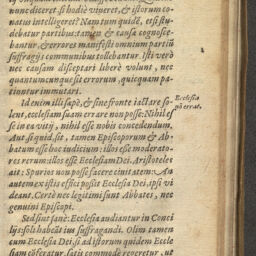 nunc diceret: si hodiè viueret, & istorum co-
natus intelligeret? Nam tum quidē, etsi stu-
debatur partibus: tamen & causa cognosce-
bantur, & errores manifesti omnium partiū
suffragijs communibus tollebantur. Isti verò
nec causam disceptari liberè volunt, nec
quantumcunque sit errorum, quicquam pa-
tiuntur immutari.
Id enim illi sæpè, & sine fronte iactare so-
lent, ecclesiam suam errare non posse: Nihil es-
se in ea vitij, nihil esse nobis concedendum,
Aut si quid sit, tamen Episcoporum & Ab-
batum esse hoc iudicium: illos esse moderato-
res rerum: illos esse Ecclesiam Dei. Aristoteles
ait: Spurios non posse facere ciuitatem: An
autem ex istis effici possit Ecclesia Dei, ipsi vi
deant. Certè nec legitimi sunt Abbates, nec
genuini Episcopi.
Sed sint sanè: Ecclesia audiantur in Conci
lijs: soli habeāt ius suffragandi. Olim tamen
cum Ecclesia Dei, si ad istorum quidem Eccle
siam cōferatur, satis commodè regeretur, ut
Ecclesia
nō errat.